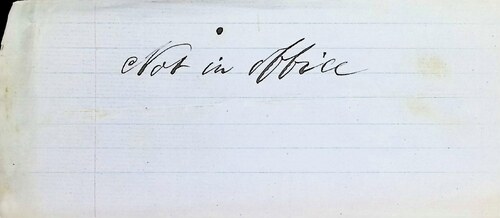 Not in office